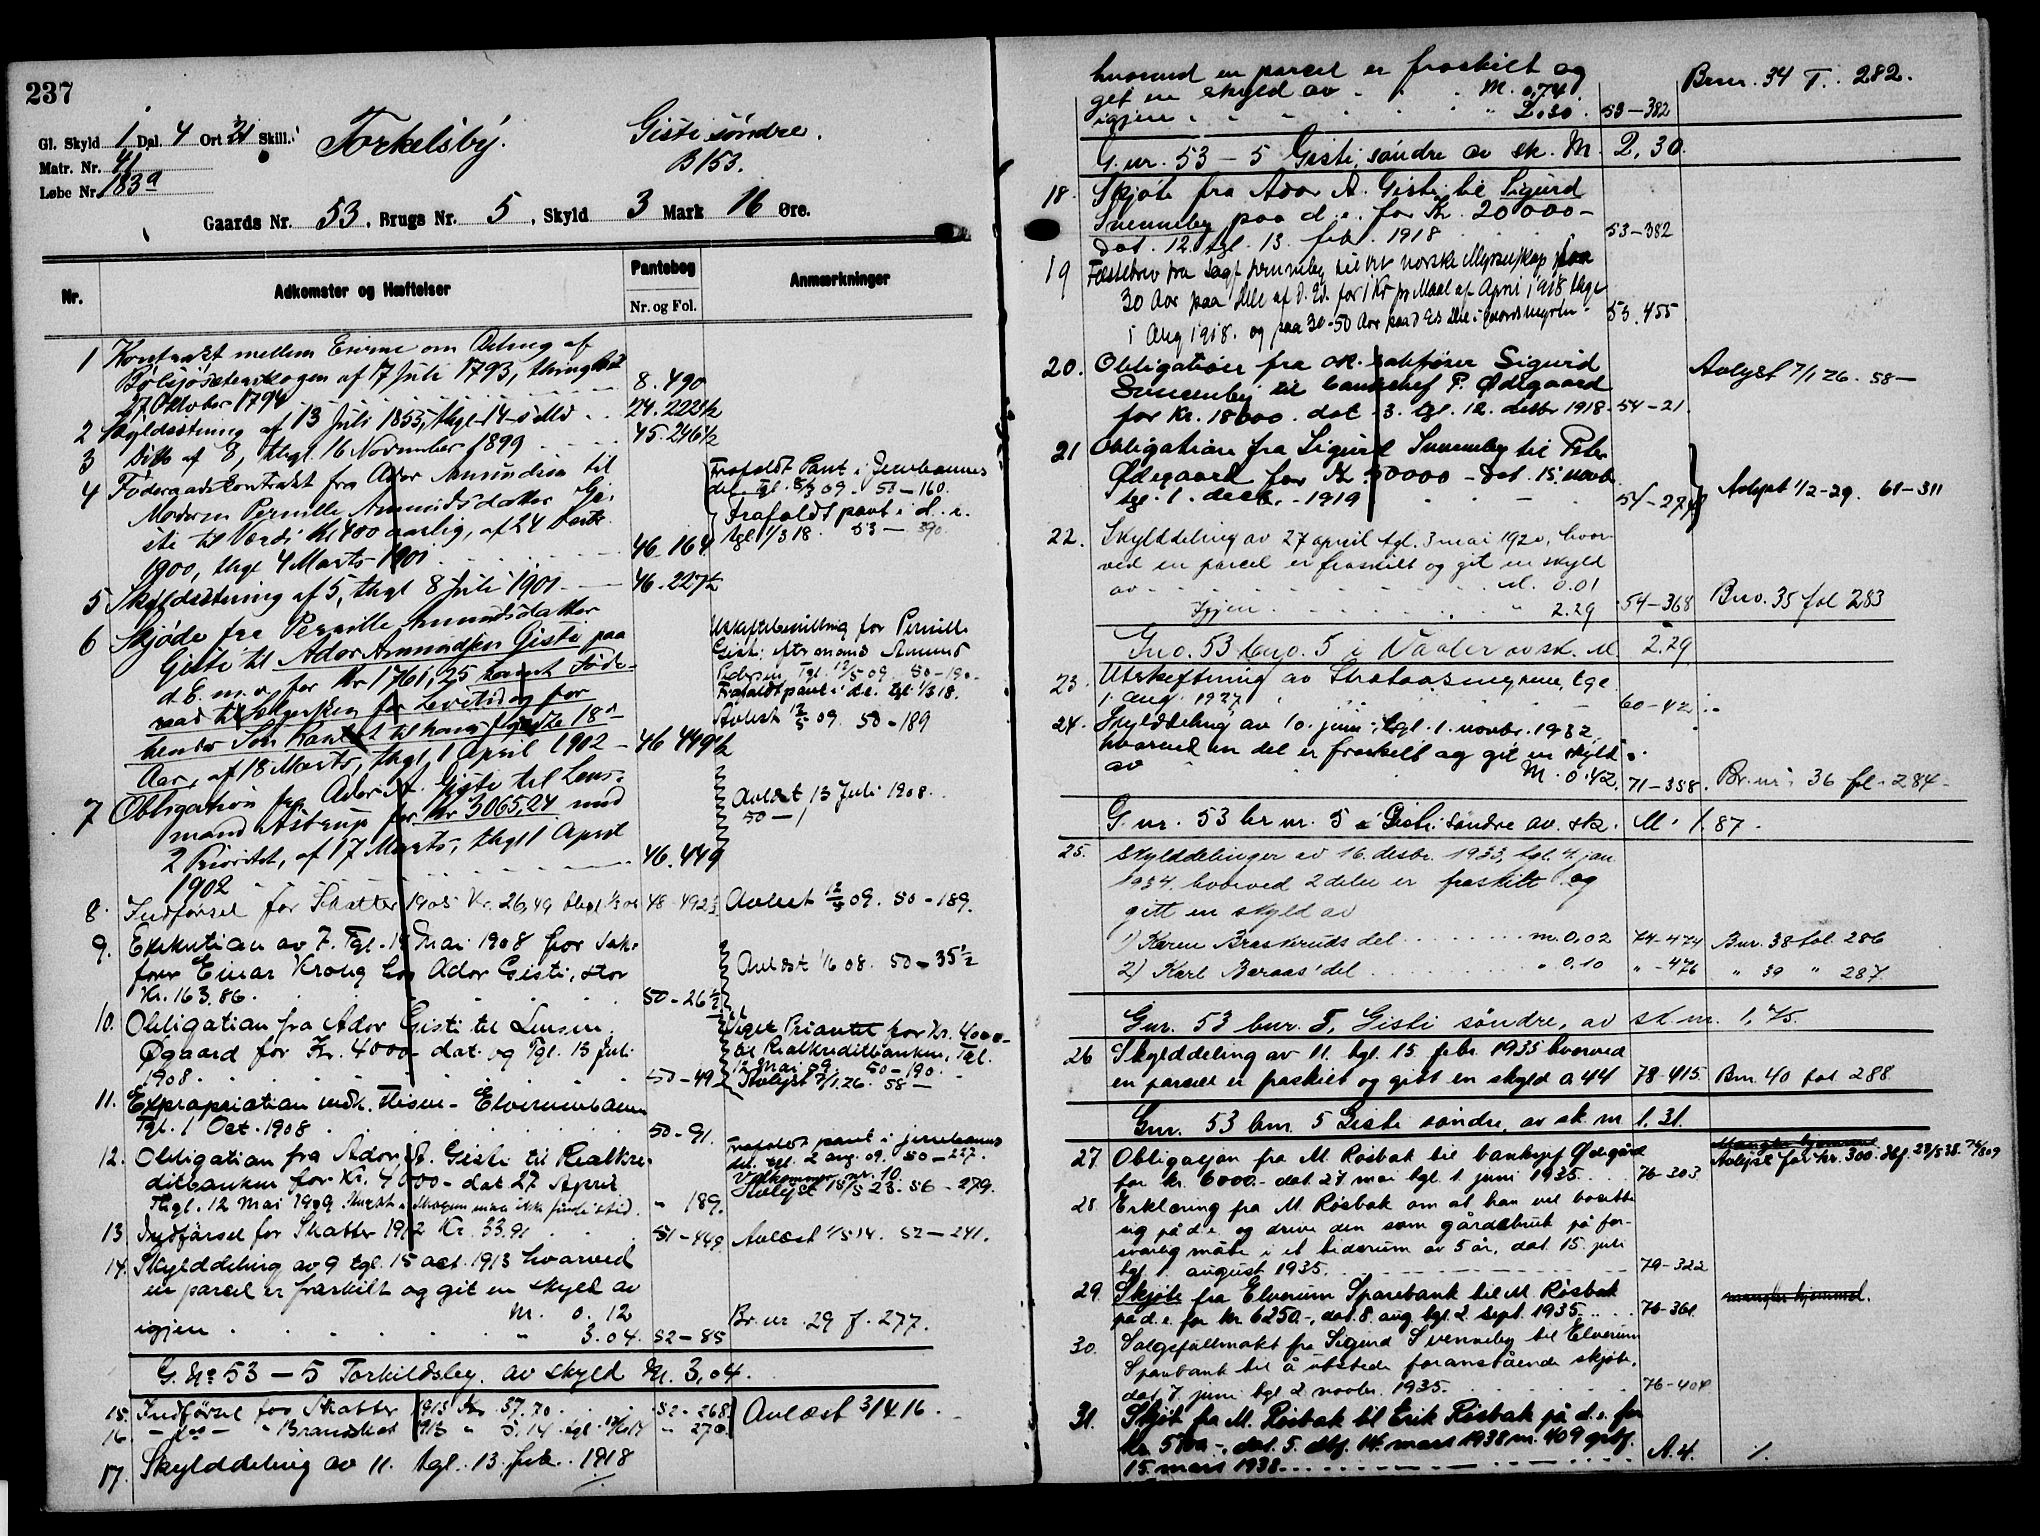 237
Gl. Skyld 1 Dal. 4 Ort 21 Skill.
Matr. Nr. 41
Løbe Nr. 183a
Torkelsby. Gisti søndre.
B 153.
Gaards Nr. 53, Brugs Nr. 5, Skyld 3 Mark 16 Øre.
Nr. Adkomster og Hæftelser Pantebog Anmærkninger
Nr. og Fol.
1 Kontrakt mellem Eierne om Deling af
af 17 Juli 1793, thinglæst
27 Oktober 1794 8. 490
2 Skyldsætning af 13 Juli 1853, thgl. 14 s. Md. 24. 222½
3 Ditto af 8, thgl. 16 November 1899 45. 246½
4 Føderaadskontrakt fra Ador Amundsen til
Moderen Pernille Amundsdatter Gi-
sti til Værdi Kr. 400 aarlig, af 24
1900, thgl. 4 Marts 1901 46. 164
Frafaldt Pant i Jernbanens
del. Tgl. 8/3 09. 50-160.
Frafaldt pant i d. e.
tgl 1/3 18. 53-390.
5 Skyldsætning af 5, thgl. 8 Juli 1901 46. 227½
6 Skjøde fra Pernille Amundsdatter
Gisti til Ador Amundsen Gisti paa
d. E. m. v. for Kr. 1761,25 samt Føde-
raad til Sælgersken for Levetid og for
hendes Søn til hans fyldte 18de
Aar, af 18 Marts, thgl. 1 April 1902 - 46. 449½
Uskiftebevilling for Pernille
Gisti efter mand Amund
Pedersen Tgl. 12/5 09. 50-190.
Frafaldt pant i d.e. tgl 1/3 18.
Avlæst 12/5 09. 50-189
7 Obligation fra Ador A. Gisti til Lens-
mand Astrup for Kr. 3065,24 med
2 Prioritet, af 17 Marts, thgl. 1 April
1902 46. 449
Avlæst 13 Juli 1908.
50-1
8. Indførsel for Skatter 1905 Kr. 26,49 48-492½ Avlæst 12/5 09. 50-189.
9. Exekution av 7. Tgl. 14 Mai 1908 for Sak-
fører Einar Krong hos Ador Gisti, stor
Kr. 163,86. 50-26½
Avlæst 1/6 08. 50-35½
10. Obligation fra Ador Gisti til Lensm.
Øgaard for Kr. 4000 dat. og Tgl. 13 Juli
1908. 50-49
Veget Prioritet for Kr. 4000-
til Realkreditbanken, Tgl.
12 Mai 09. 50-190.
Avlyst 7/1 26. 58-
11. Expropriation vedk. Flisen-Elverumbanen
Tgl. 1 Oct. 1908 50-91.
12. Obligation fra Ador A. Gisti til Realkre-
ditbanken for Kr. 4000- dat 27 April
Thgl. 12 Mai 1909. - 189.
Frafaldt pant i jernbanens
del. tgl. 2 aug. 09. 50-227.
Vedkommer nr. 10.
Avlyst 15/5 23. 56-279.
13 Indførsel for Skatter 1912 Kr. 33.91 51-449. Avlæst 1/5 14. 52-241.
14. Skylddeling av 9 tgl. 15 oct. 1913 hvorved
en parcel er fraskilt og git en skyld av
M. 0.12
igjen " 3.04. 52-85 Br. nr. 29 f. 277.
G. No 53-5 Torkildsby. av skyld M. 3,04.
15. Indførsel for Skatter 1913 Kr. 37,70 52-268
16. -do- " Brandskat 1913 " 5,14 " 270 Avlæst 3/4 16.
17. Skylddeling av 11. tgl. 13. febr. 1918
hvorved en parcel er fraskilt og
git en skyld av M. 0,74
igjen " 2.30. 53-382 Bnr. 34 F. 282.
G. nr. 53-5 Gisti søndre av sk. M. 2,30
18. Skjøte fra Ador A. Gisti til Sigurd
Svenneby paa d. e. for Kr. 20000-
Dat. 12 tgl. 13. febr. 1918 53-382
19 Fæstebrev fra Sagf. Svenneby til Det norske Myrselskap paa
30 Aar paa Del af d. Ed. for 1 Kr pr Maal af April 1918 thgl
1 Aug 1918. og paa 30-50 Aar paa 53. 455
20. Obligation fra o.r. sakfører Sigurd
Svenneby til banksjef P. Ødegaard
for Kr. 18000. dat 3. tgl. 12. desbr 1918. 54-21. Avlyst 7/1 26. 58-
21 Obligation fra Sigurd Svenneby til Peter
Ødegaard for Kr. 30000 - Dat. 15 novb.
tgl. 1. decb. 1919 54-277 Avlyst 1/2-29. 61-311
22. Skylddeling av 27 april tgl. 3 mai 1920, hvor-
ved en parcel er fraskilt og git en skyld
av M. 0.01
Igjen " 2.29 54-368 Bno. 35 fol 283
Gno. 53 bno. 5 i Vaaler av sk. M. 2.29
23. Utskiftning av tgl.
1. aug. 1927 60-42
24. Skylddeling av 10. juni, tgl. 1. novbr. 1932,
hvorved en del er fraskilt og git en skyld
av M. 0.42. 71-358. Br. nr. 36 fl. 284-
G. nr. 53 br nr. 5 i Gisti søndre av. sk. M. 1.87.
25. Skylddelinger av 16. desbr. 1933, tgl. 4. jan
1934. hvorved 2 deler er fraskilt og
gitt en skyld av
1) Karen Braskeruds del m. 0,02 74-474 Bnr. 38 fol. 286
2) Karl Baraas' del " 0.10 " -476 " 39 " 287.
Gnr. 53 bnr. 5, Gisti søndre, av sk m. 1,75.
26 Skylddeling av 11. tgl. 15. febr. 1935 hvorved
en parsell er fraskilt og gitt en skyld 0.44 78-415. Bnr. 40 fol 288.
Gnr. 53 bnr. 5 Gisti søndre, av sk. m 1.31.
27. Obligasjon fra M. Røsbak til banksjef Ødegård
for kr. 6000.- dat. 27 mai tgl. 1. juni 1935. 76-303
Mangler hjemmel
Avlyst for kr. 300.
28. Erklæring fra M. Røsbak om at han vil bosette
sig på d.e. og drive den som gårdsbruk på for-
svarlig måte i et tidsrum av 5 år, dat. 15. juli
tgl 1. august 1935. 79-322
29. Skjøte fra Elverum Sparebank til M. Røsbak
på d.e. for kr 6250.-, dat. 8. aug. tgl. 2 sept. 1935. 76-361 mangler hjemmel.
30. Salgsfullmakt fra Sigurd Svenneby til Elverum
Sparebank til å utstede foranstående skjøte.
dat. 7. juni tgl. 2. novbr. 1935. 76-404
31. Skjøt fra M. Røsbak til Erik Røsbak på d.e. for
kr. 5700-, dat. 5. dbf. 14. mars 1938 m. 409 grbf.
15. mars 1938. A. 4. 1.